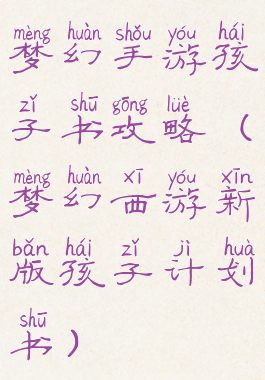 mèng huàn shǒu yóu hái
梦幻手游孩
zǐ shū gōng lüè
子书攻略（
mèng huàn xī yóu xīn
梦幻西游新
bǎn hái zǐ jì huà
版孩子计划
shū
书）